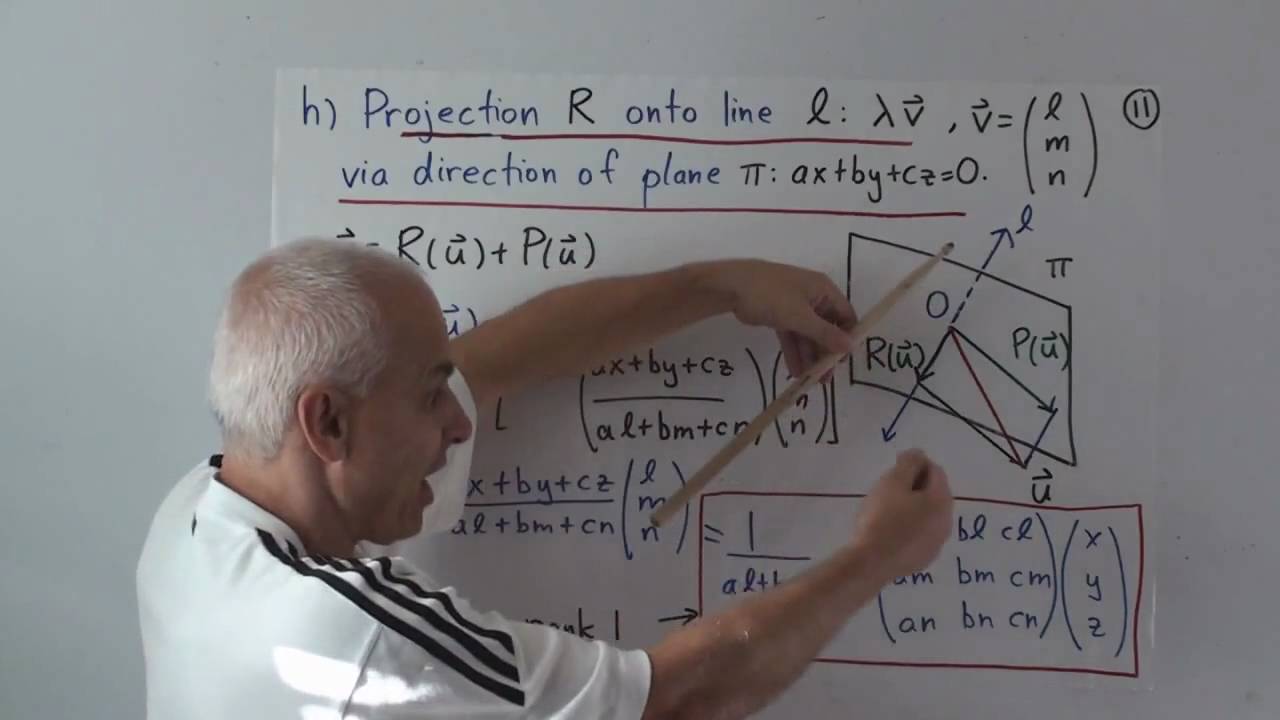 h) Projection R onto line l: λv⃗, v⃗=(l m n) ⑪
via direction of plane π: ax+by+cz=0.
= R(u⃗)+P(u⃗)
l
π
O
R(u⃗)
P(u⃗)
u⃗
u⃗)
(ax+by+cz / al+bm+cn)( n n)]
x+by+cz / al+bm+cn (l m n)
= 1 / al+b
bl cl
am bm cm
an bn cn
(x y z)
rank 1 →